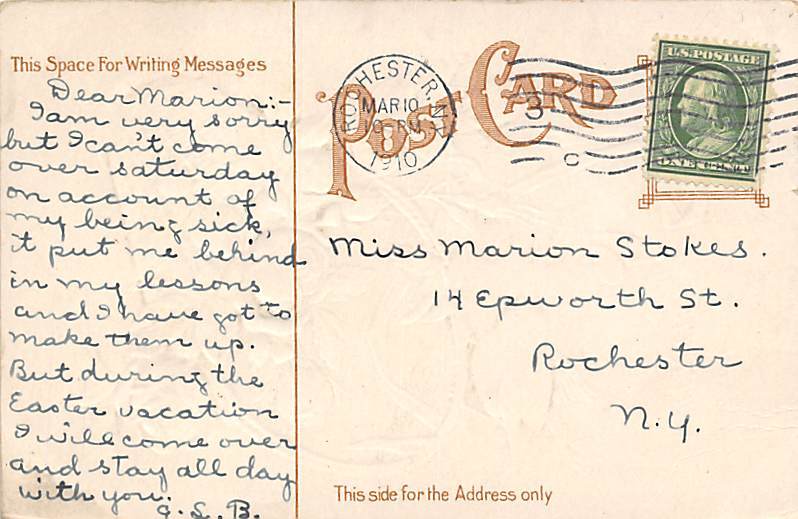 This Space For Writing Messages
Dear Marion:-
I am very sorry
but I can't come
over saturday
on account of
my being sick,
it put me behind
in my lessons
and I have got to
make them up.
But during the
Easter vacation
I will come over
and stay all day
with you.
G. L. B.
POST CARD
ROCHESTER, N.Y.
MAR 10
1910
3
C
U.S. POSTAGE
ONE CENT
Miss Marion Stokes.
14 Epworth St.
Rochester
N.Y.
This side for the Address only